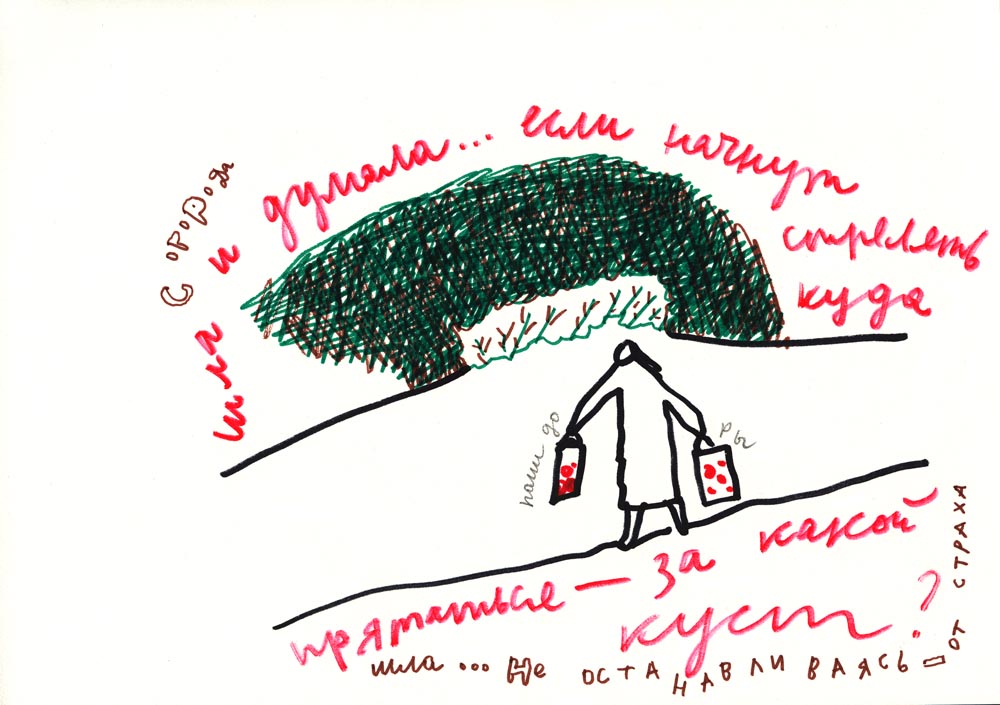 С ОРОРОДА
шла и думала... если начнут
стрелять
куда
прятаться — за какой
куст?
наши да
ры
шла ... Не ОСТАНАВЛИВАЯСЬ — ОТ СТРАХА